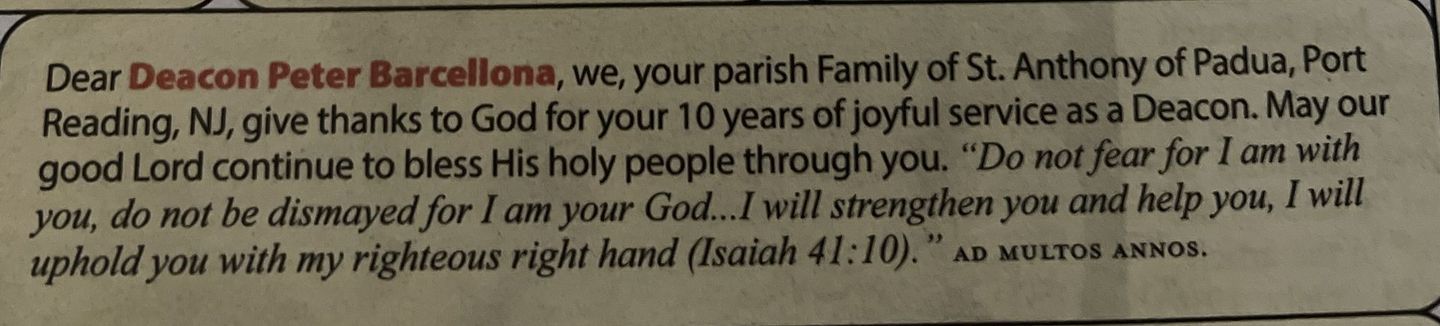 Dear Deacon Peter Barcellona, we, your parish Family of St. Anthony of Padua, Port
Reading, NJ, give thanks to God for your 10 years of joyful service as a Deacon. May our
good Lord continue to bless His holy people through you. “Do not fear for I am with
you, do not be dismayed for I am your God...I will strengthen you and help you, I will
uphold you with my righteous right hand (Isaiah 41:10).” AD MULTOS ANNOS.